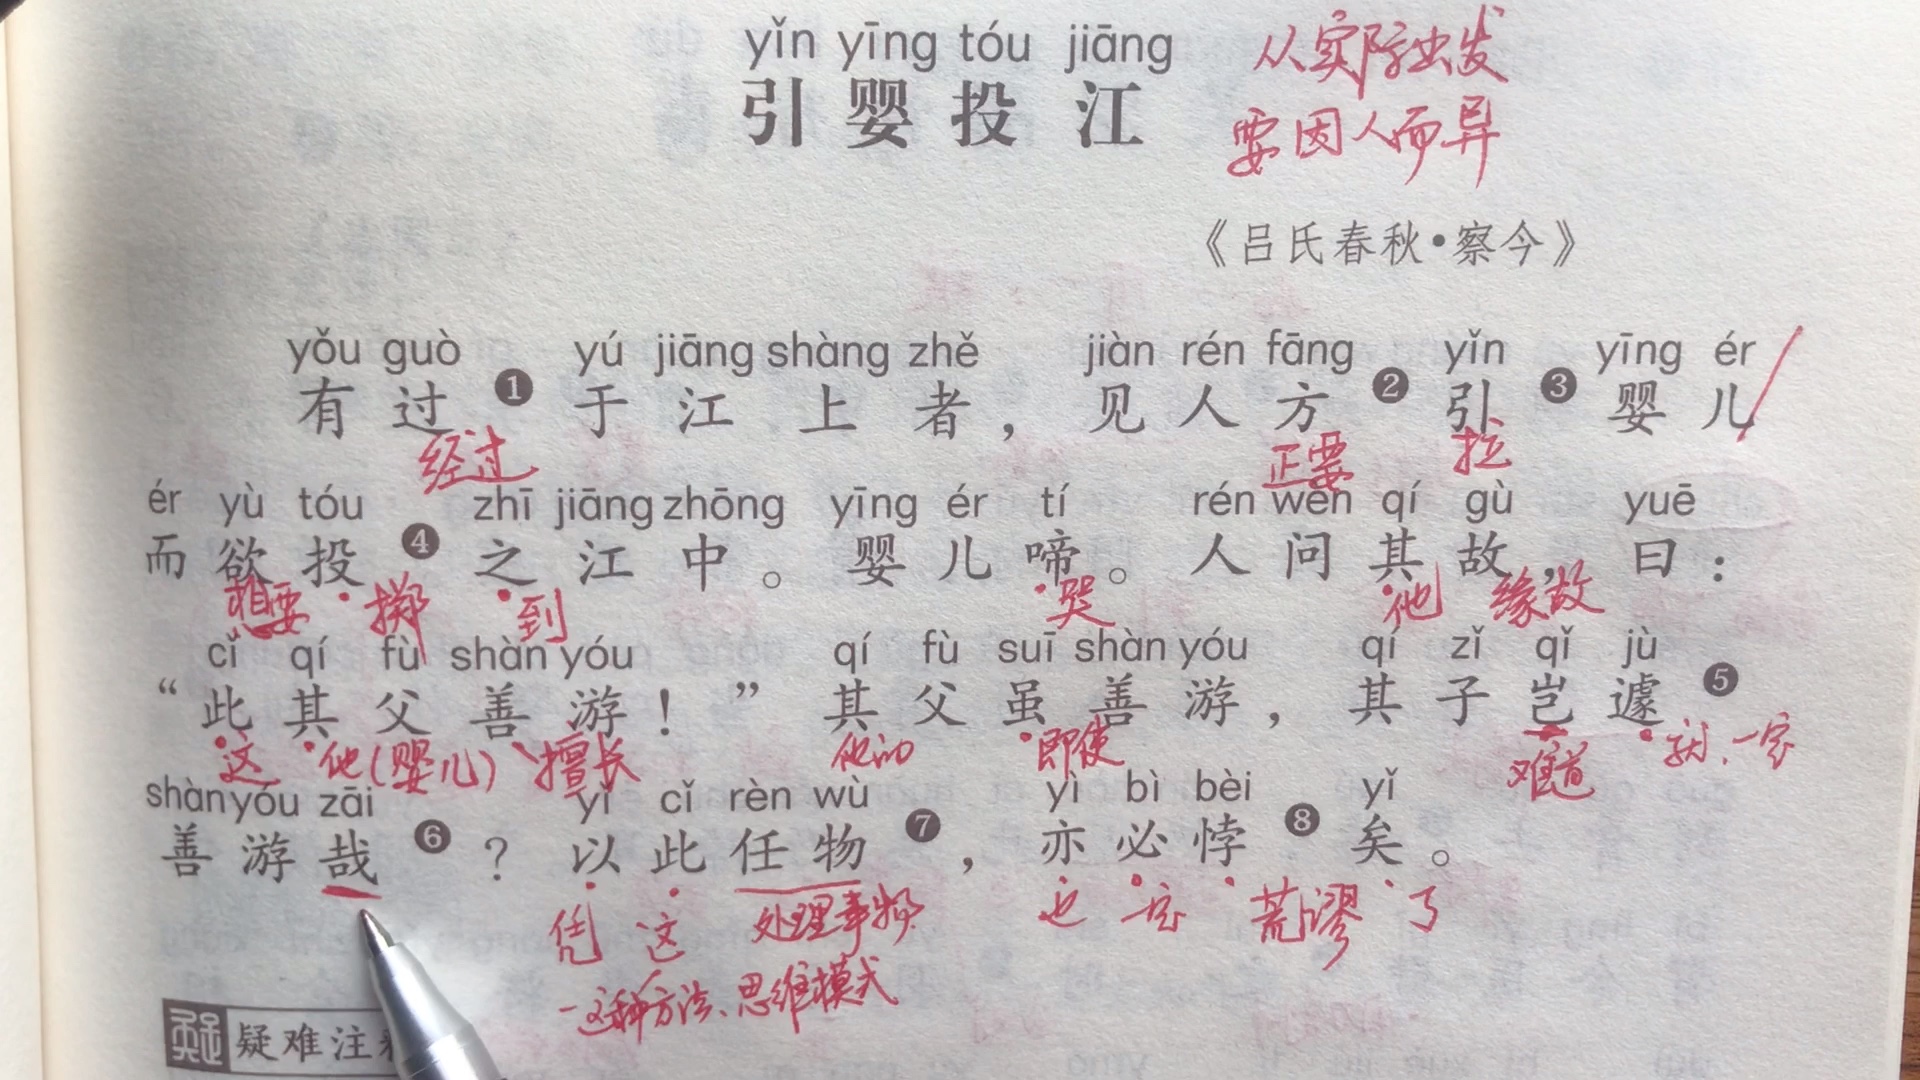 yǐn yīng tóu jiāng
引婴投江
从实际出发
要因人而异
《吕氏春秋·察今》
yǒu guò yú jiāng shàng zhě jiàn rén fāng yǐn yīng ér
有过❶于江上者，见人方❷引❸婴儿
经过 正要 拉
ér yù tóu zhī jiāng zhōng yīng ér tí rén wèn qí gù yuē
而欲投❹之江中。婴儿啼。人问其故，曰：
想要 掷 到 哭 他 缘故
cǐ qí fù shàn yóu qí fù suī shàn yóu qí zǐ qǐ jù
“此其父善游！”其父虽善游，其子岂遽❺
这 他(婴儿) 擅长 他的 即使 难道 就、一定
shàn yóu zāi yǐ cǐ rèn wù yì bì bèi yǐ
善游哉❻？以此任物❼，亦必悖❽矣。
凭 这 处理事物 也 一定 荒谬 了
这种方法、思维模式
疑难注